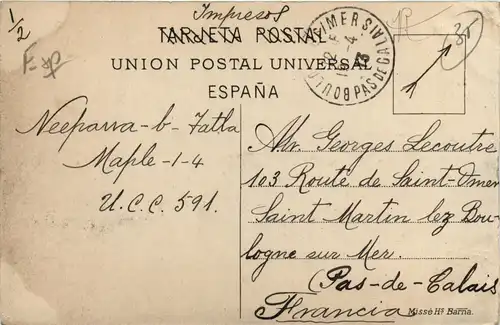 1/2
Impresos
TARJETA POSTAL
UNION POSTAL UNIVERSAL
ESPAÑA
BOULOGNE S MER PAS DE CALAIS
35
Neeparra-b-Fatla
Maple-1-4
U.C.C. 591.
Mr. Georges Lecoutre
103 Route de Saint-Omer
Saint Martin lez Bou-
logne sur Mer.
(Pas-de-Calais
Francia
Missé Hs Barna.